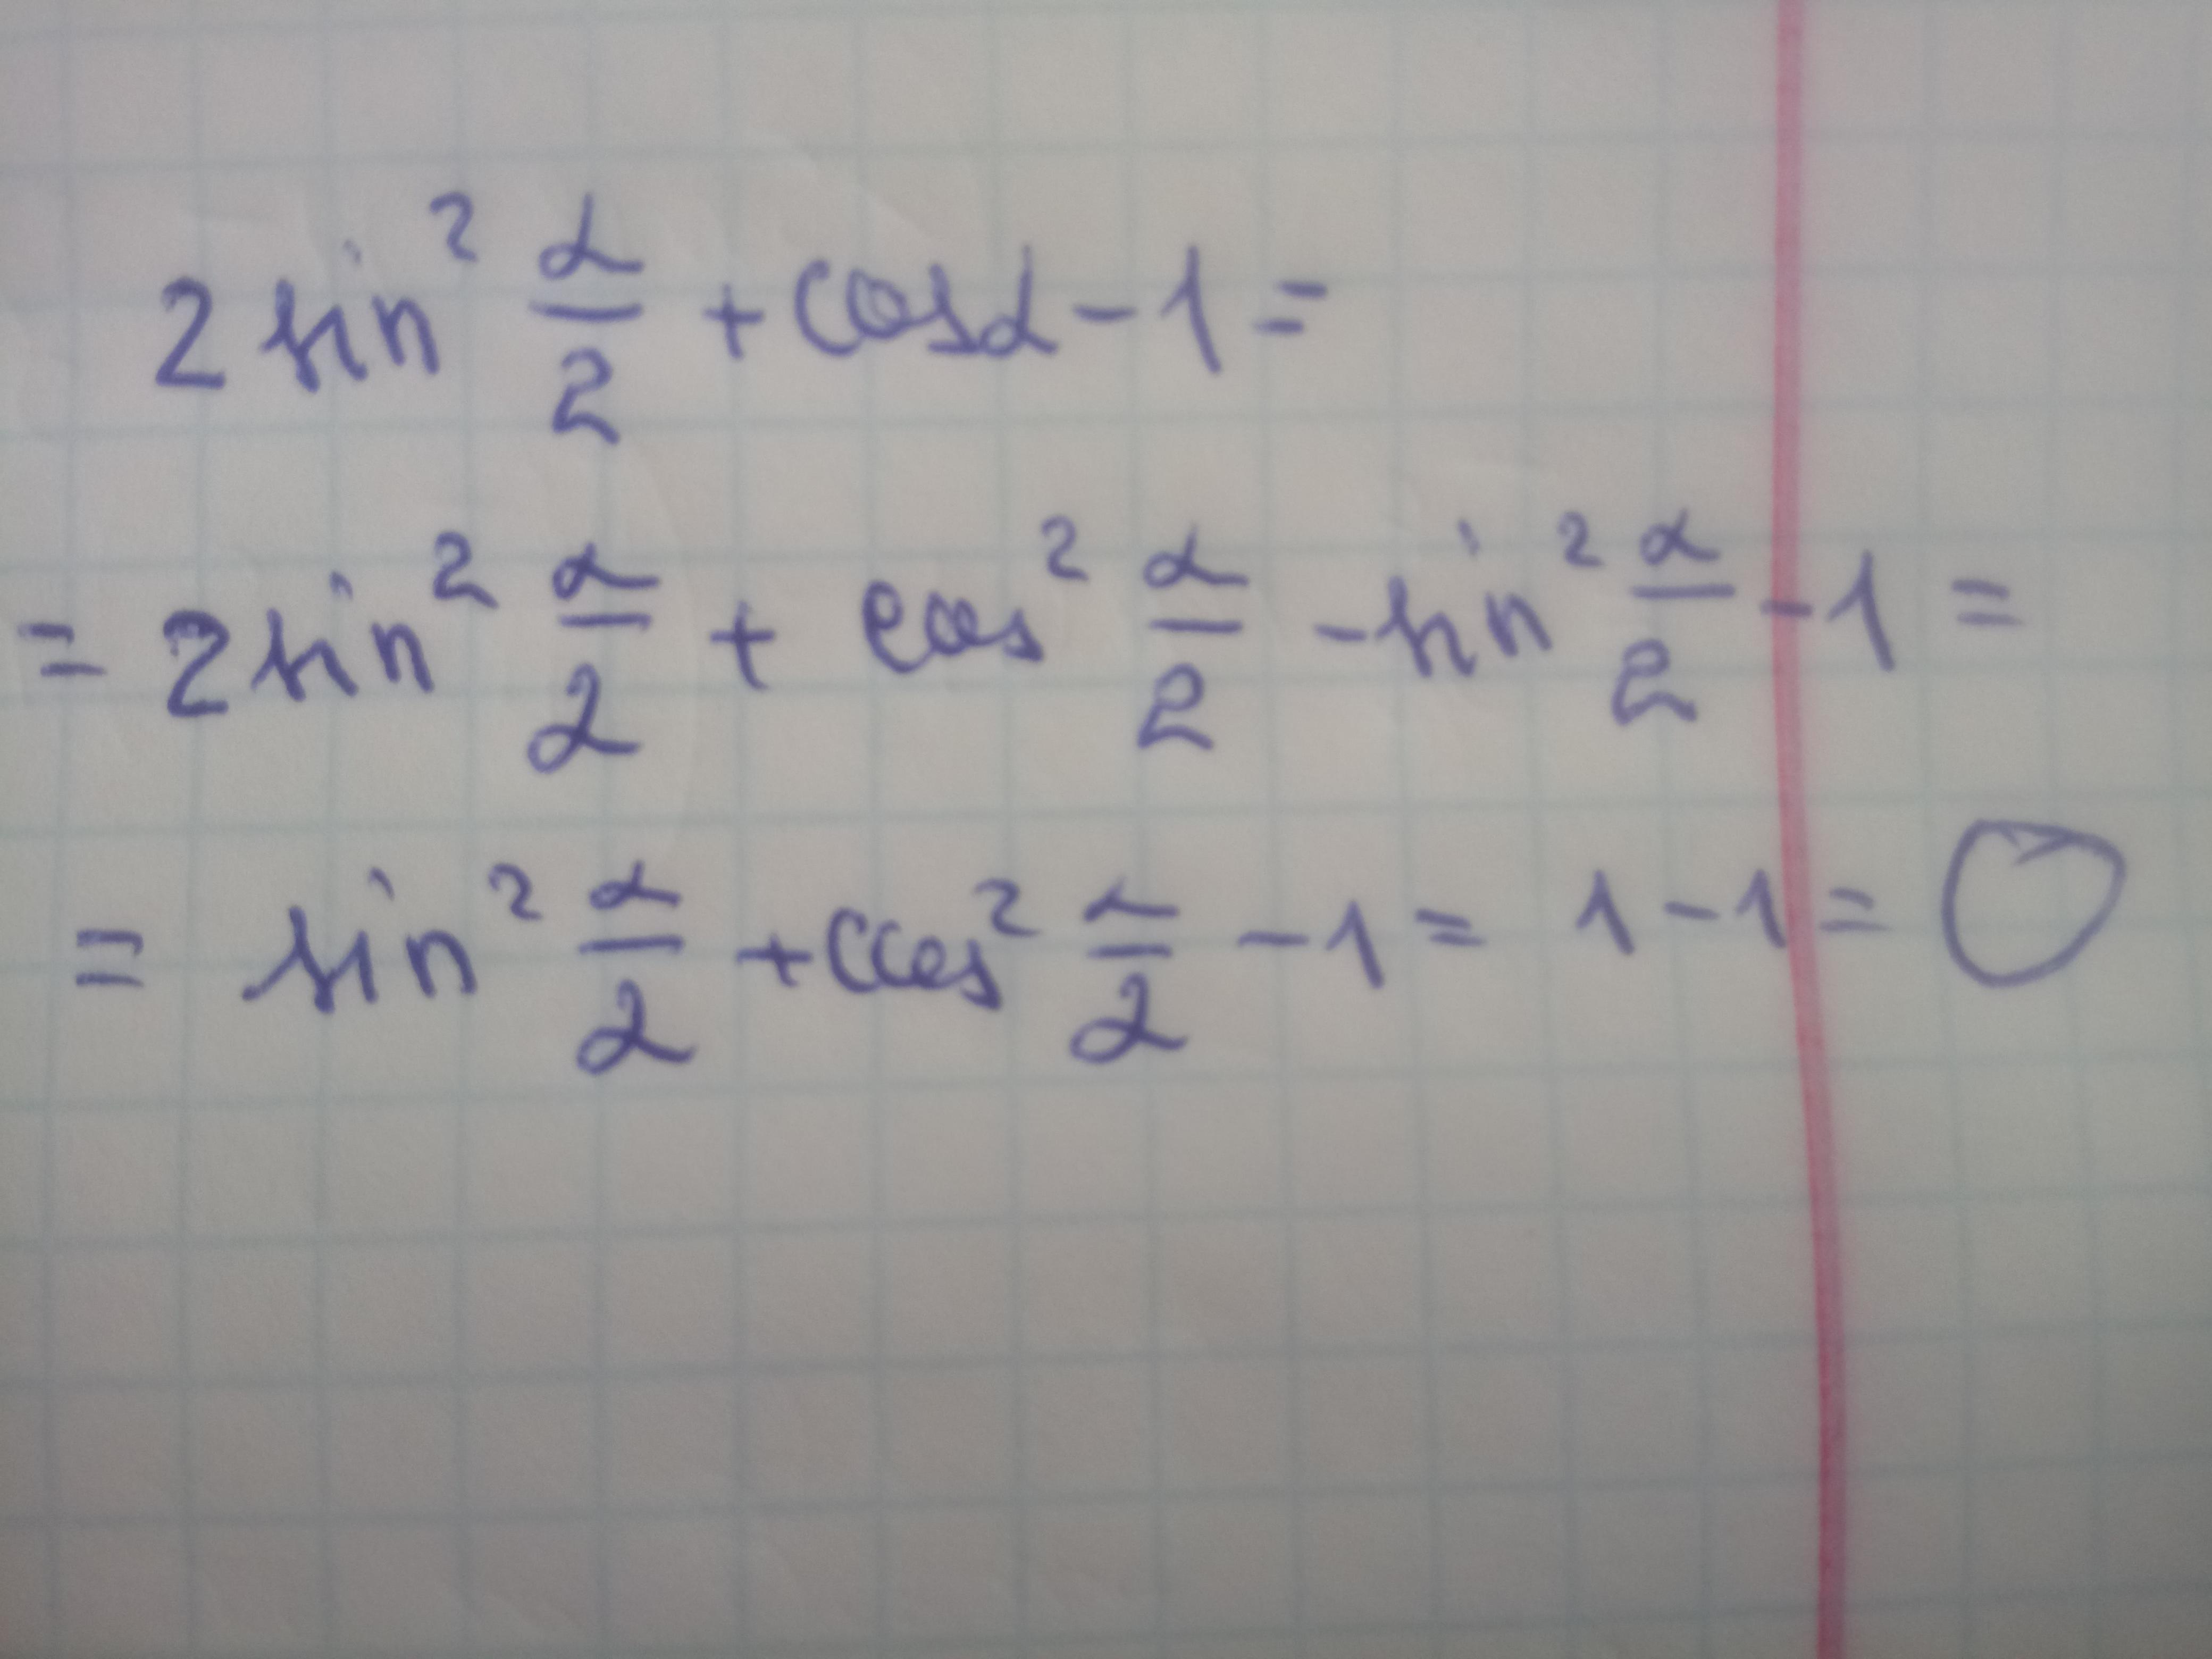 2 sin² α/2 + cosα - 1 =
= 2 sin² α/2 + cos² α/2 - sin² α/2 - 1 =
= sin² α/2 + cos² α/2 - 1 = 1 - 1 = 0